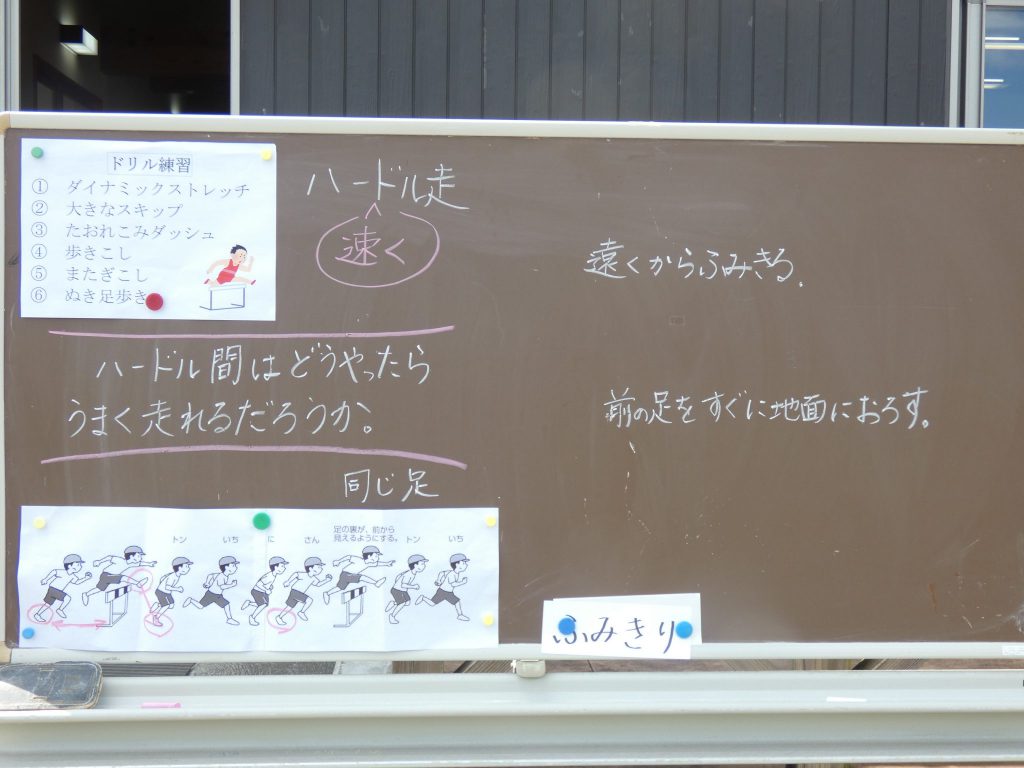 ドリル練習
① ダイナミックストレッチ
② 大きなスキップ
③ たおれこみダッシュ
④ 歩きこし
⑤ またぎこし
⑥ ぬき足歩き
ハードル走
速く
ハードル間はどうやったら
うまく走れるだろうか。
同じ足
足の裏が、前から
見えるようにする。
トン いち に さん トン いち
遠くからふみきる。
前の足をすぐに地面におろす。
ふみきり